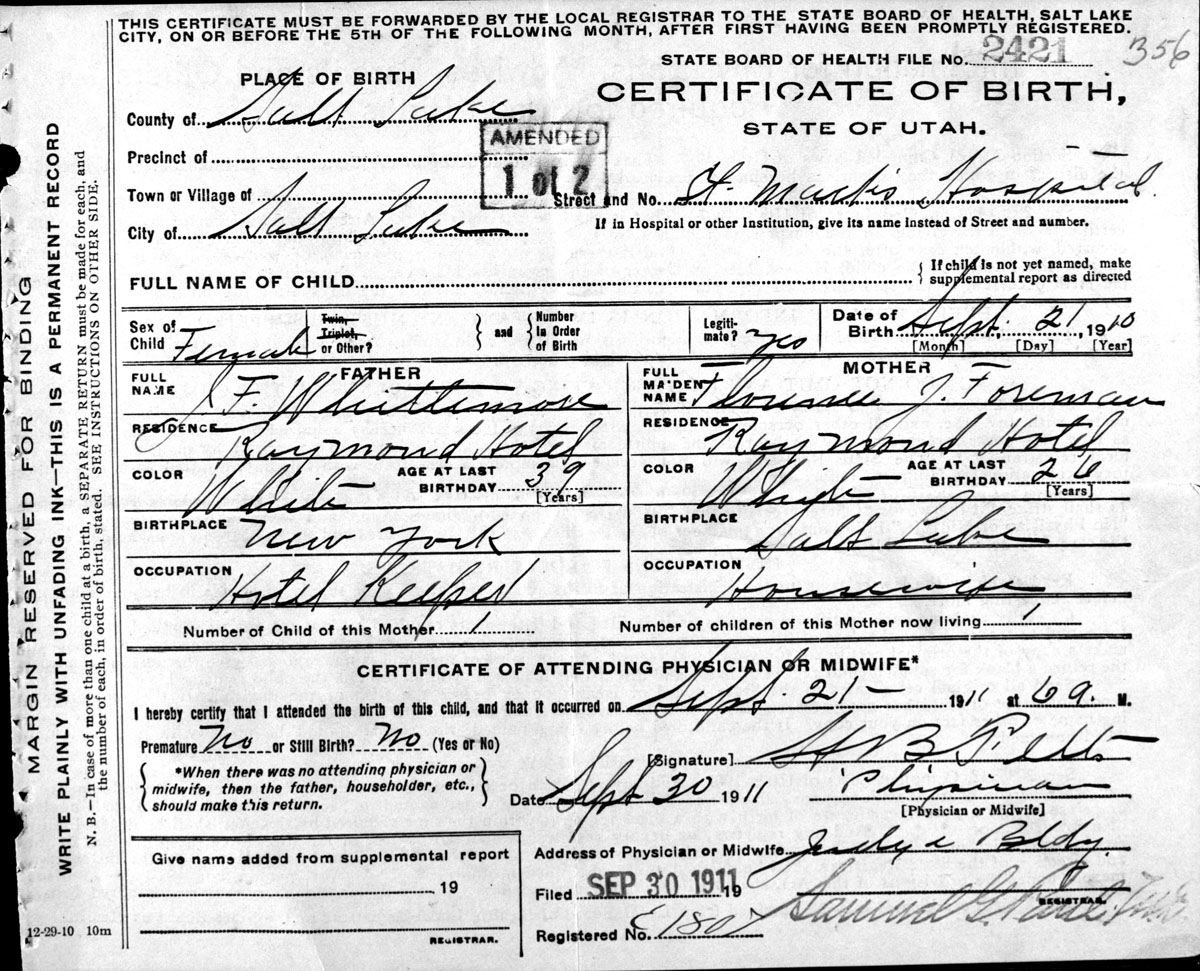 THIS CERTIFICATE MUST BE FORWARDED BY THE LOCAL REGISTRAR TO THE STATE BOARD OF HEALTH, SALT LAKE
CITY, ON OR BEFORE THE 5TH OF THE FOLLOWING MONTH, AFTER FIRST HAVING BEEN PROMPTLY REGISTERED.
STATE BOARD OF HEALTH FILE No. 2421 356
PLACE OF BIRTH
CERTIFICATE OF BIRTH,
STATE OF UTAH.
County of Salt Lake
AMENDED
1 of 2
Precinct of
Town or Village of
Street and No. St Mark's Hospital.
City of Salt Lake
If in Hospital or other Institution, give its name instead of Street and number.
FULL NAME OF CHILD
{ If child is not yet named, make
supplemental report as directed
Sex of Child Female
Twin, Triplet, or Other?
} and { Number in Order of Birth
Legiti-mate? Yes
Date of Birth Sept. 21, 1910
[Month] [Day] [Year]
FATHER
FULL NAME J. F. Whittemore
MOTHER
FULL MAIDEN NAME Florence J. Foreman
RESIDENCE Raymond Hotel
RESIDENCE Raymond Hotel
COLOR White
AGE AT LAST BIRTHDAY 39
[Years]
COLOR White
AGE AT LAST BIRTHDAY 26
[Years]
BIRTHPLACE New York
BIRTHPLACE Salt Lake
OCCUPATION Hotel Keeper
OCCUPATION Housewife
Number of Child of this Mother 1
Number of children of this Mother now living 1
CERTIFICATE OF ATTENDING PHYSICIAN OR MIDWIFE*
I hereby certify that I attended the birth of this child, and that it occurred on Sept. 21- 1911 at 6 a. M.
Premature No or Still Birth? No (Yes or No)
{ *When there was no attending physician or
midwife, then the father, householder, etc.,
should make this return. }
[Signature] H B
Date Sept 30 1911
Physician
[Physician or Midwife]
Give name added from supplemental report
19
REGISTRAR.
Address of Physician or Midwife Judge Bldg.
Filed SEP 30 1911 19
Samuel G.
REGISTRAR.
Registered No. E1807
12-29-10 10m
MARGIN RESERVED FOR BINDING
WRITE PLAINLY WITH UNFADING INK—THIS IS A PERMANENT RECORD
N. B.—In case of more than one child at a birth, a SEPARATE RETURN must be made for each, and
the number of each, in order of birth, stated. SEE INSTRUCTIONS ON OTHER SIDE.